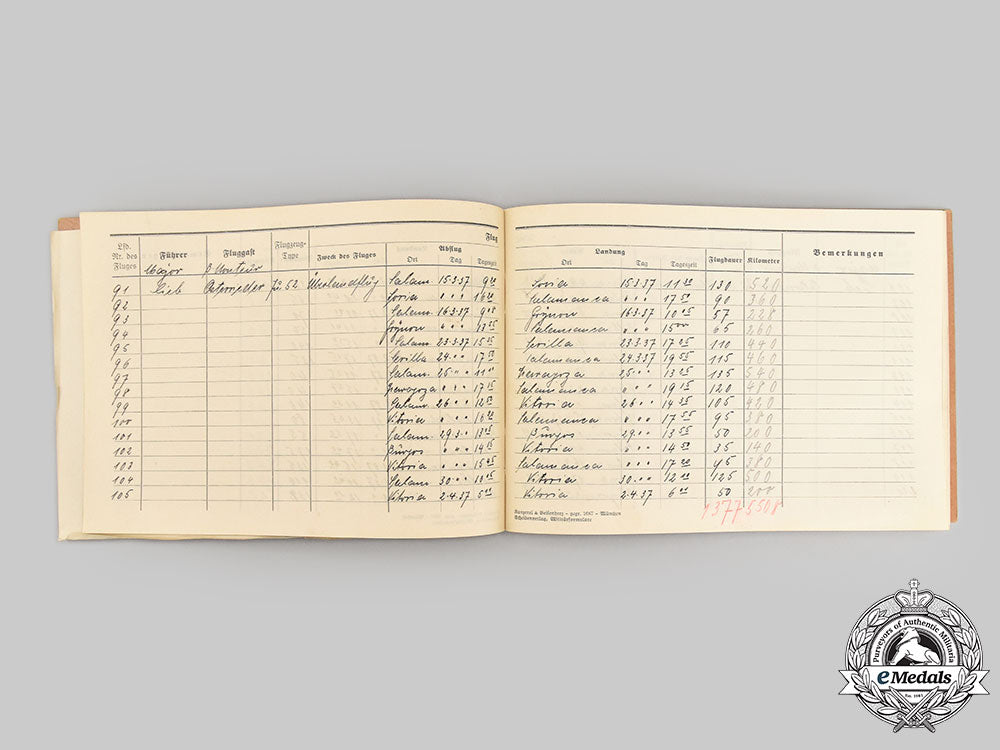 Flug
Lfd. Nr. des Fluges Führer Fluggast Flugzeug-Type Zweck des Fluges Abflug Landung Flugdauer Kilometer Bemerkungen
Ort Tag Tageszeit Ort Tag Tageszeit
Major
91 Lieb Ju 52 Überlandflug Salam. 15.3.37 9 20 Soria 15.3.37 11 30 130 520
92 Soria " " " 16 20 Salamanca " " " 17 50 90 360
93 Salam. 16.3.37 9 08 16.3.37 10 05 57 228
94 " " " 13 55 Salamanca " " " 15 00 65 260
95 Salam. 23.3.37 15 15 Sevilla 23.3.37 17 05 110 440
96 Sevilla 24. " " 17 50 Salamanca 24.3.37 19 55 115 460
97 Salam. 25. " " 11 Zaragoza 25. " " 13 135 540
98 Zaragoza " " " 17 15 Salamanca " " " 19 15 120 480
99 Salam. 26 " " 12 50 Vitoria 26 " " 14 35 105 420
100 Vitoria " " " 16 20 Salamanca " " " 17 55 95 380
101 Salam. 29.3 " 13 05 Burgos 29 " " 13 55 50 200
102 Burgos " " " 14 15 Vitoria " " " 14 50 35 140
103 Vitoria " " " 15 45 Salamanca " " " 17 20 95 380
104 Salam. 30 " " 10 05 Vitoria 30 " " 12 10 125 500
105 Vitoria 2.4.37 5 Vitoria 2.4.37 6 50 200
1377 5508
gegr. 1867 – München
Purveyors of Authentic Militaria
eMedals